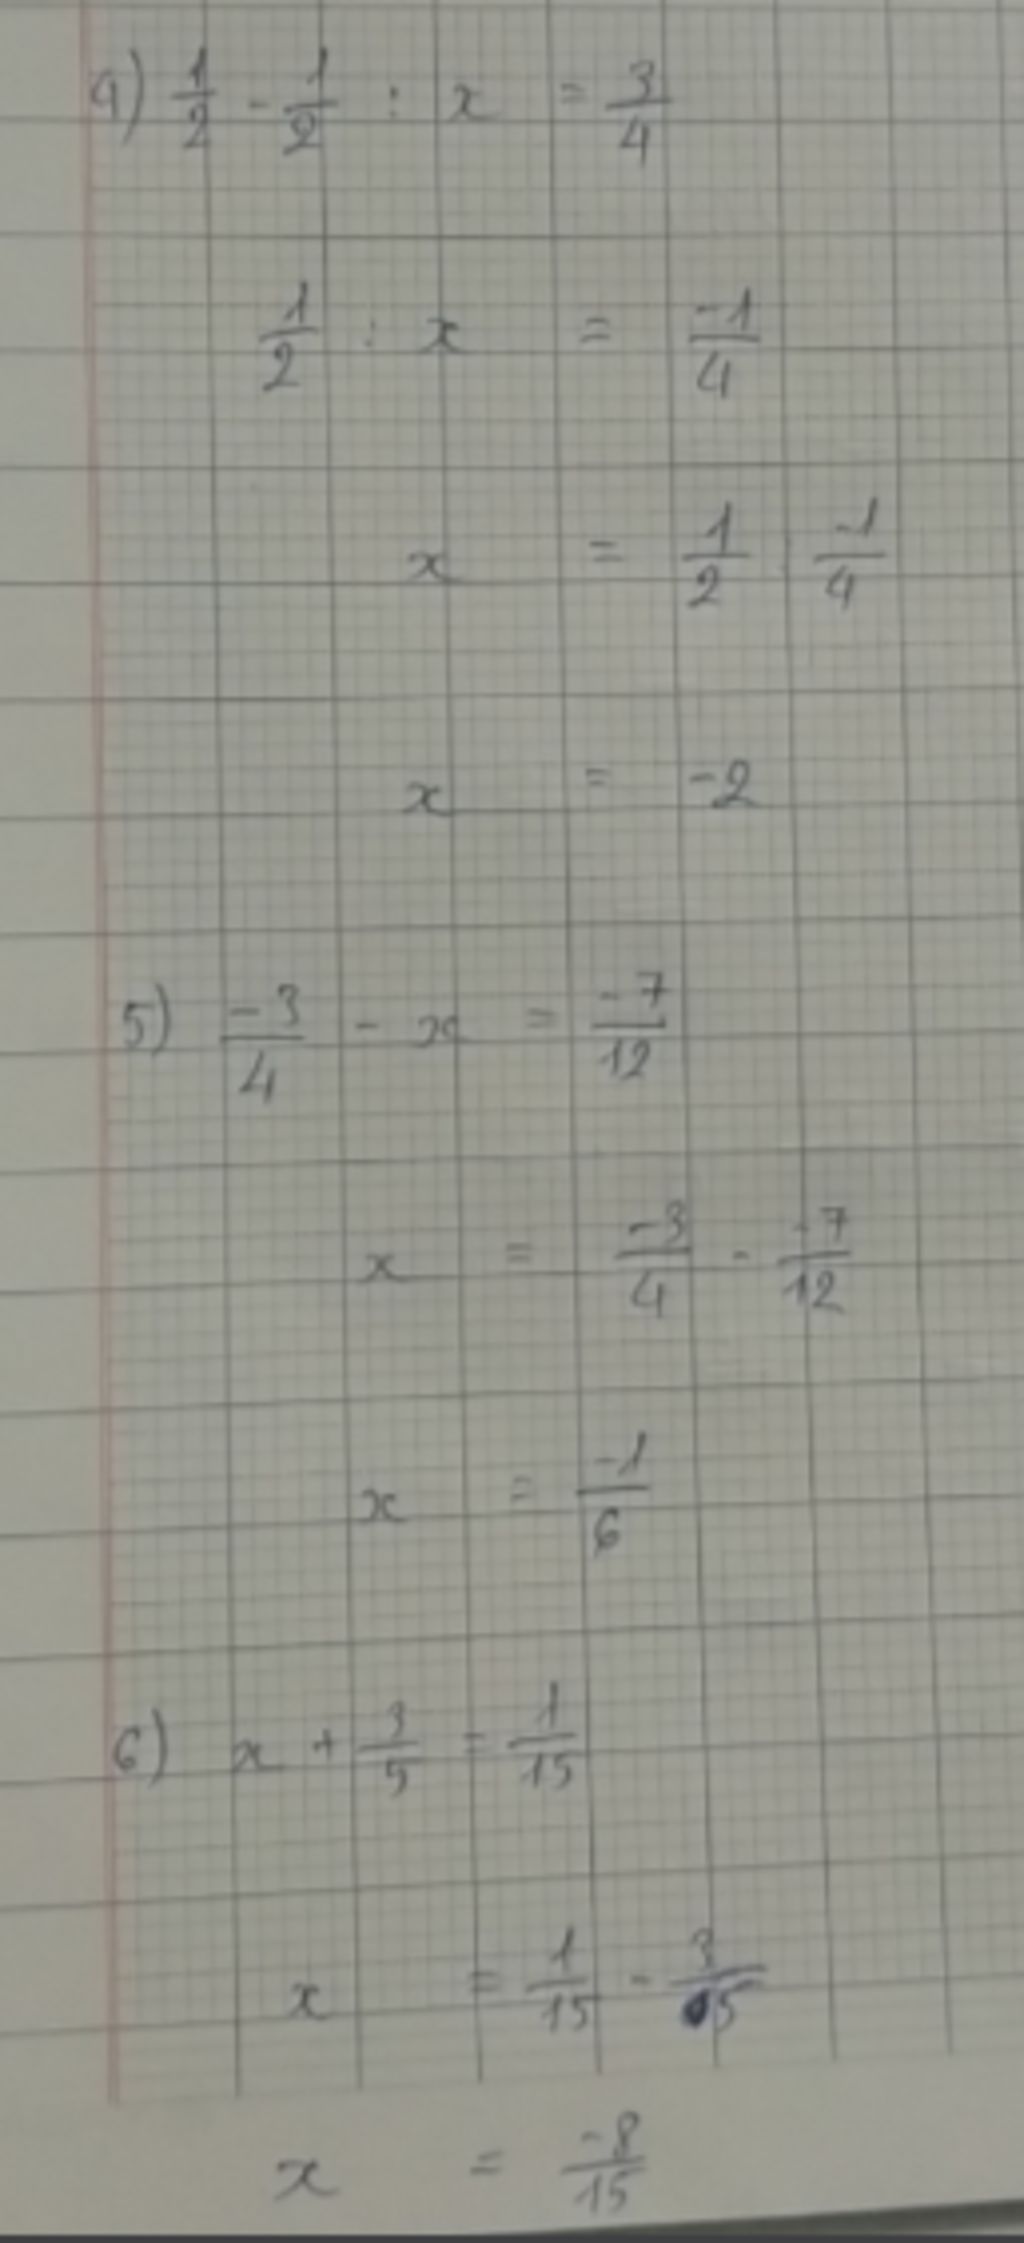 4) 1/2 - 1/2 : x = 3/4
1/2 : x = -1/4
x = 1/2 : -1/4
x = -2
5) -3/4 - x = -7/12
x = -3/4 - -7/12
x = -1/6
6) x + 3/5 = 1/15
x = 1/15 - 3/5
x = -8/15